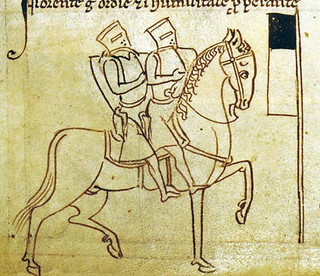 florente q̄ ordie ⁊ i humilitate ꝓperante